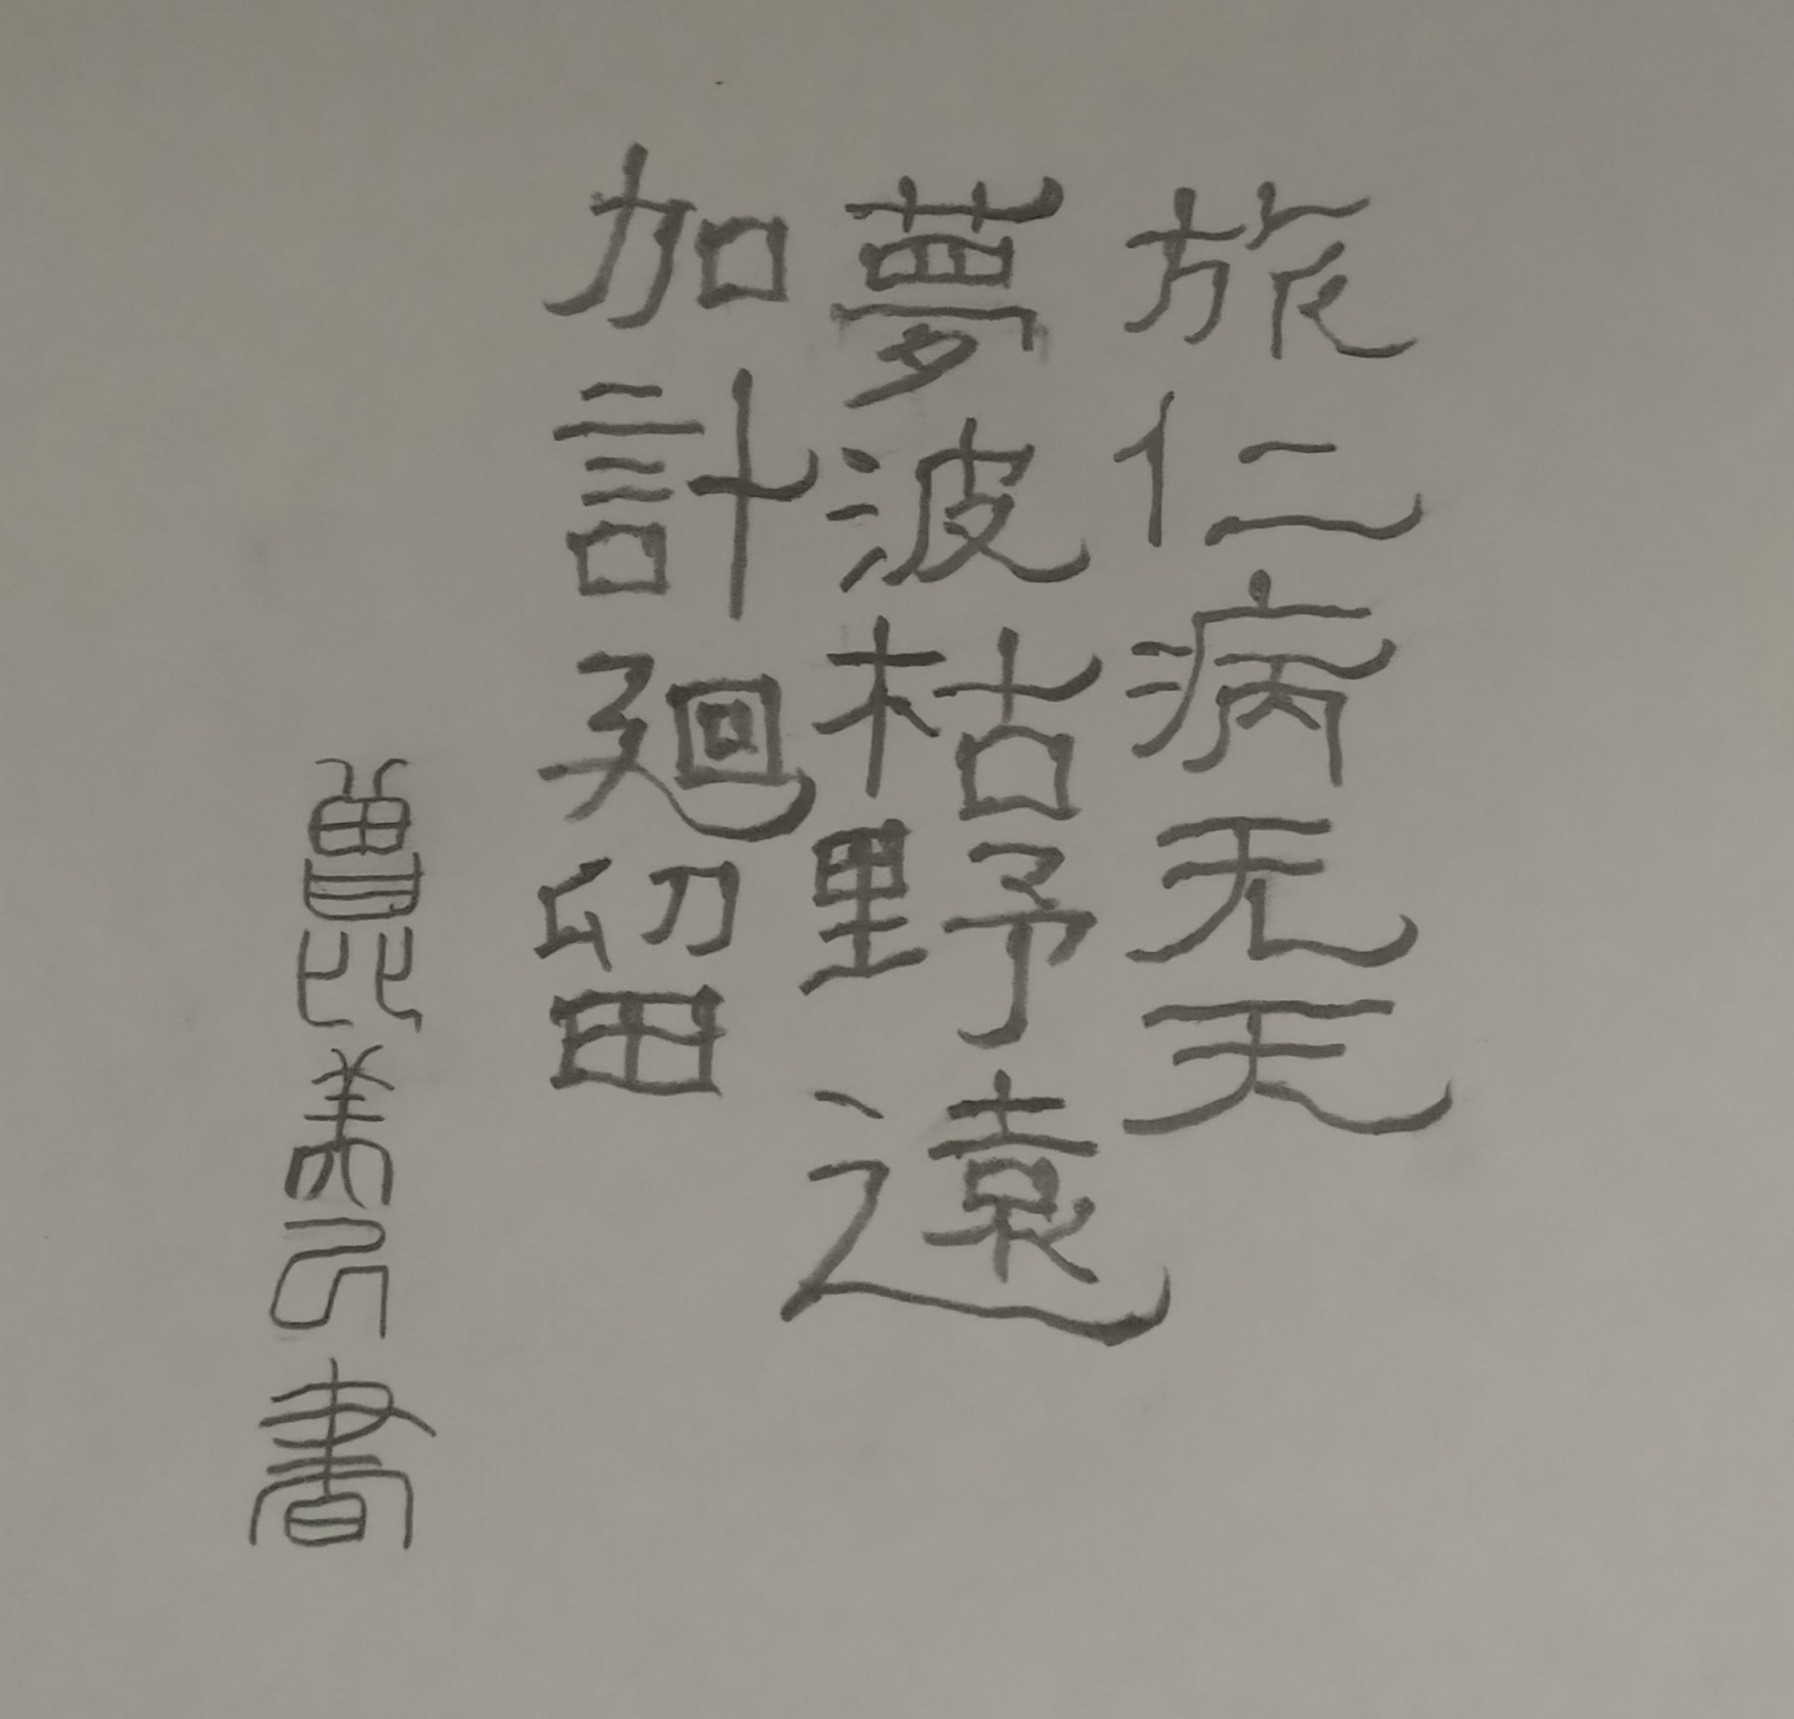 旅仁病无天
夢波枯野遠
加計廻留
曾比美己書